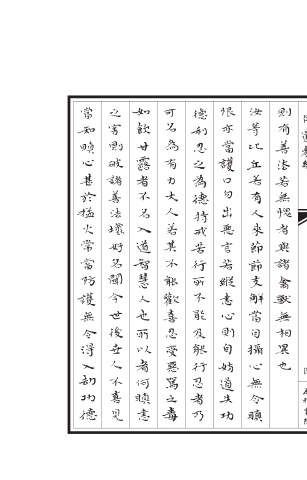 則有善法若無愧者與諸禽獸無相異也
汝等比丘若有人來節節支解當自攝心無令瞋
恨亦當護口勿出惡言若縱恚心則自妨道失功
德利忍之為德持戒苦行所不能及能行忍者乃
可名為有力大人若其不能歡喜忍受惡罵之毒
如飲甘露者不名入道智慧人也所以者何瞋恚
之害則破諸善法壞好名聞今世後世人不喜見
當知瞋心甚於猛火常當防護無令得入劫功德